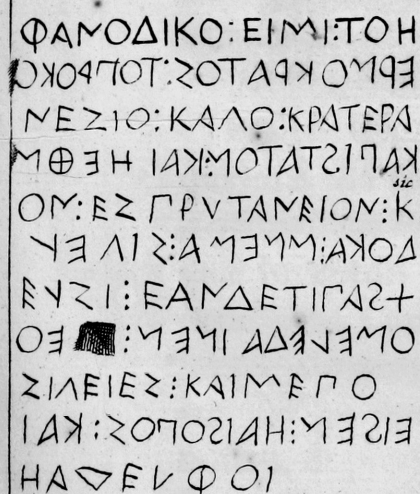 ΦΑΝΟΔΙΚΟ:ΕΙΜΙ:ΤΟΗ
ΕΡΜΟΚΡΑΤΟΣ:ΤΟΠΡΟΚΟ
ΝΕΣΙΟ:ΚΑΓΟ:ΚΡΑΤΕΡΑ
ΚΑΠΙΣΤΑΤΟΝ:ΚΑΙ ΗΕΘΜ
sic
ΟΝ:ΕΣ ΠΡΥΤΑΝΕΙΟΝ:Κ
ΔΟΚΑ:ΜΝΕΜΑ:ΣΙΓΕΥ
ΕΥΣΙ:ΕΑΝΔΕΤΙΠΑΣΧ
ΟΜΕΛΕΔΑΙΝΕΝ: ΕΟ
ΣΙΓΕΙΕΣ:ΚΑΙΜΕΠΟ
ΕΙΣΕΝ:ΗΑΙΣΟΠΟΣ:ΚΑΙ
ΗΑΔΕΛΦΟΙ